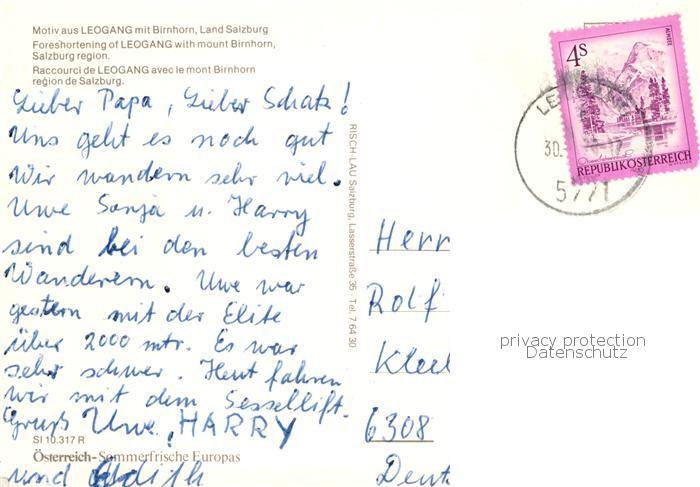 Motiv aus LEOGANG mit Birnhorn, Land Salzburg
Foreshortening of LEOGANG with mount Birnhorn,
Salzburg region.
Raccourci de LEOGANG avec le mont Birnhorn
region de Salzburg.
Lieber Papa, Lieber Schatz!
Uns geht es noch gut
Wir wandern sehr viel.
Uwe Sonja u. Harry
sind bei den besten
Wanderern. Uwe war
gestern mit der Elite
über 2000 mtr. Es war
sehr schwer. Heut fahren
wir mit dem Sessellift.
Gruß Uwe, HARRY
und Edith
SI 10.317 R
Österreich-Sommerfrische Europas
RISCH-LAU Salzburg, Lasserstraße 35 · Tel. 7 64 30
4s
ALMSEE
REPUBLIK ÖSTERREICH
30.
5771
Herr
Rolf
6308
privacy protection
Datenschutz